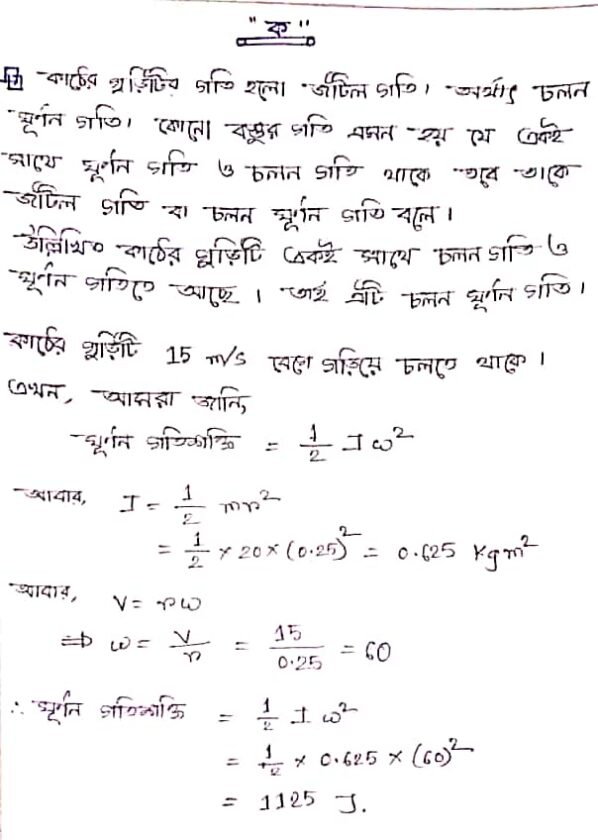 "ক"
কাঠের গুড়িটির গতি হলো জটিল গতি। অর্থাৎ চলন
ঘূর্ণন গতি। কোনো বস্তুর গতি এমন হয় যে একই
সাথে ঘূর্ণন গতি ও চলন গতি থাকে তবে তাকে
জটিল গতি বা চলন ঘূর্ণন গতি বলে।
উল্লিখিত কাঠের গুড়িটি একই সাথে চলন গতি ও
ঘূর্ণন গতিতে আছে। তাই এটি চলন ঘূর্ণন গতি।
কাঠের গুড়িটি 15 m/s বেগে গড়িয়ে চলতে থাকে।
এখন, আমরা জানি,
ঘূর্ণন গতিশক্তি = 1/2 I ω²
আবার, I = 1/2 mr²
= 1/2 × 20 × (0.25)² = 0.625 Kgm²
আবার, V = rω
⇒ ω = V/r = 15/0.25 = 60
∴ ঘূর্ণন গতিশক্তি = 1/2 I ω²
= 1/2 × 0.625 × (60)²
= 1125 J.